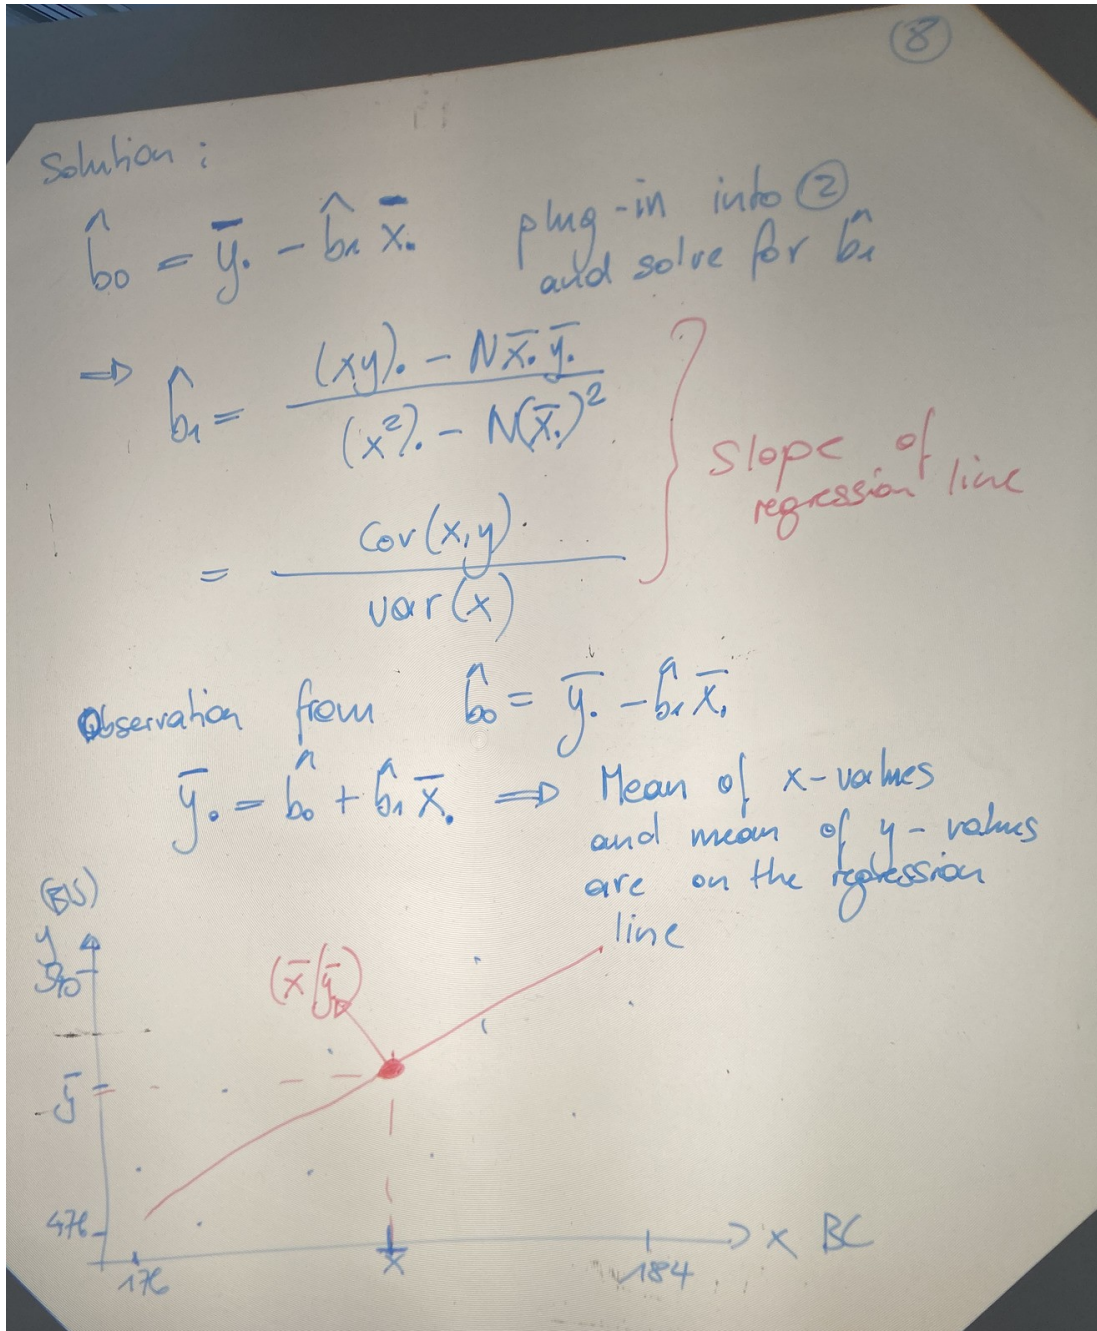 8
Solution :
b̂0 = ȳ. − b̂1 x̄.
plug-in into ②
and solve for b̂1
⇒ b̂1 = ((xy). − N x̄. ȳ.) / ((x²). − N(x̄.)²)
= Cov(x,y) / var(x)
Slope of
regression line
Observation from b̂0 = ȳ. − b̂1 x̄.
ȳ. = b̂0 + b̂1 x̄. ⇒ Mean of x-values
and mean of y-values
are on the regression
line
y
540
(x̄|ȳ)
ȳ
476
176
x̄
184
x BC